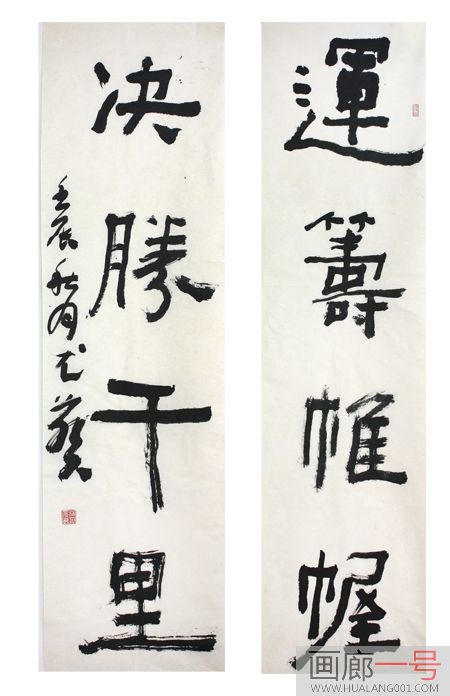 運籌帷幄
决勝千里
壬辰秋月
画廊一号
WWW.HUALANG001.COM